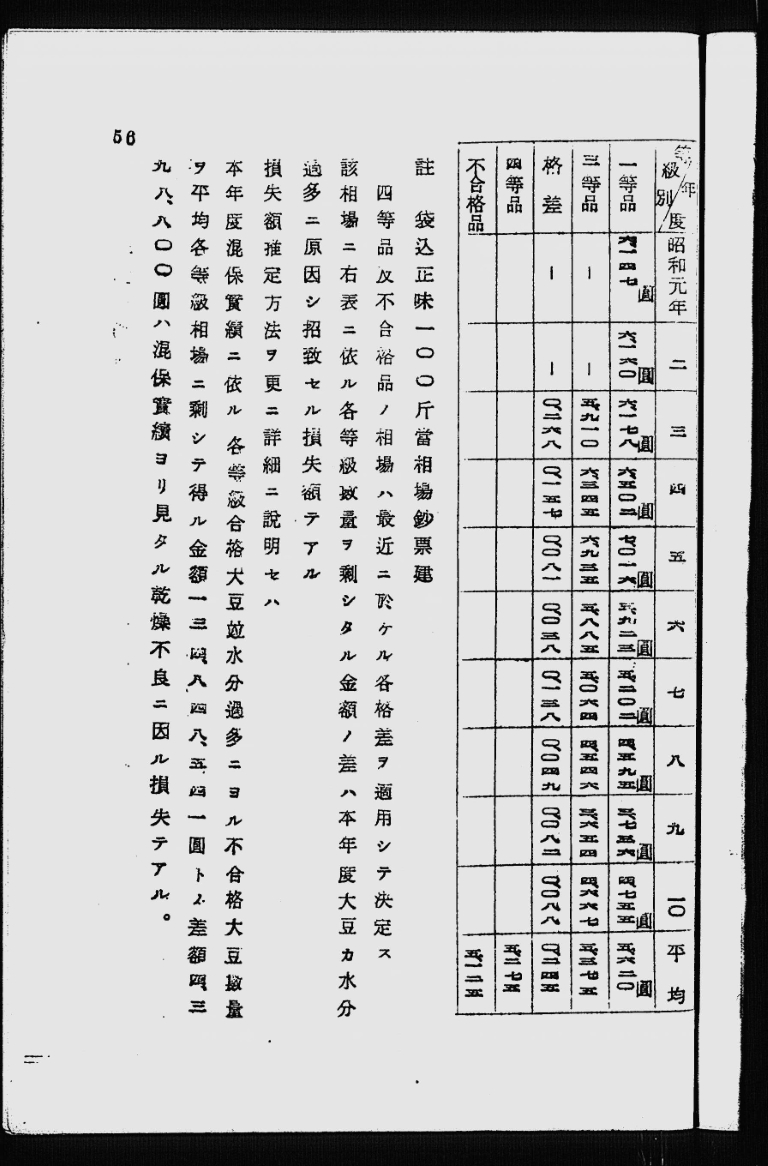 等級別/年度 昭和元年 二 三 四 五 六 七 八 九 一〇 平均
一等品 六、一四七圓 六、一六〇圓 六、一七八圓 六、五〇二圓 七、〇一六圓 五、九二三圓 五、二〇二圓 四、五九五圓 三、七三六圓 四、七五五圓 五、六二〇圓
三等品 ― ― 五、九一〇 六、三四五 六、九三五 五、八八五 五、〇六四 四、五四六 三、六五四 四、六六七 五、三七五
格差 ― ― 〇、二六八 〇、一五七 〇、〇八一 〇、〇三八 〇、一三八 〇、〇四九 〇、〇八二 〇、〇八八 〇、二四五
四等品 五、二七五
不合格品 五、一二五
註 袋込正味一〇〇斤當相場鈔票建
四等品及不合格品ノ相場ハ最近ニ於ケル各格差ヲ適用シテ決定ス
該相場ニ右表ニ依ル各等級數量ヲ剩シタル金額ノ差ハ本年度大豆カ水分
過多ニ原因シ招致セル損失額テアル
損失額推定方法ヲ更ニ詳細ニ說明セハ
本年度混保實績ニ依ル各等級合格大豆竝水分過多ニヨル不合格大豆數量
ヲ平均各等級相場ニ剩シテ得ル金額一三四、八四八、五四一圓トノ差額四、三
九八、八〇〇圓ハ混保實績ヨリ見タル乾燥不良ニ因ル損失テアル。
56